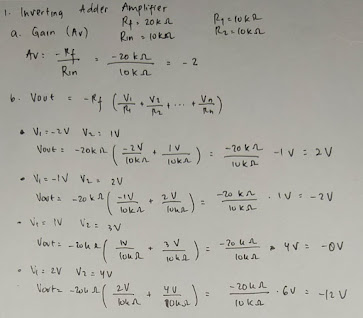 1. Inverting Adder Amplifier
Rf = 20kΩ R1 = 10kΩ
a. Gain (Av) Rin = 10kΩ R2 = 10kΩ
Av = -Rf / Rin = -20kΩ / 10kΩ = -2
b. Vout = -Rf (V1/R1 + V2/R2 + ... + Vn/Rn)
• V1 = -2V V2 = 1V
Vout = -20kΩ (-2V/10kΩ + 1V/10kΩ) = -20kΩ/10kΩ -1V = 2V
• V1 = -1V V2 = 2V
Vout = -20kΩ (-1V/10kΩ + 2V/10kΩ) = -20kΩ/10kΩ . 1V = -2V
- V1 = 1V V2 = 3V
Vout = -20kΩ (1V/10kΩ + 3V/10kΩ) = -20kΩ/10kΩ 4V =
• V1 = 2V V2 = 4V
Vout = -20kΩ (2V/10kΩ + 4V/10kΩ) = -20kΩ/10kΩ . 6V = -12V